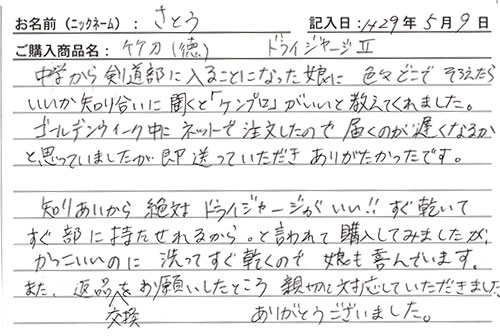 お名前（ニックネーム）: さとう 記入日：H29年5月9日
ご購入商品名：竹刀（徳） ドライジャージⅡ
中学から剣道部に入ることになった娘に 色々どこで そろえたら
いいか知り合いに聞くと「ケンプロ」がいいと教えてくれました。
ゴールデンウィーク中にネットで注文したので届くのが遅くなるか
と思っていましたが即送っていただきありがたかったです。
知りあいから絶対ドライジャージがいい!!すぐ乾いて
すぐ部に持たせれるから。と言われて購入してみましたが、
かっこいいのに洗ってすぐ乾くので娘も喜んでいます。
また、返品、交換をお願いしたところ親切に対応していただきました
ありがとうございました。